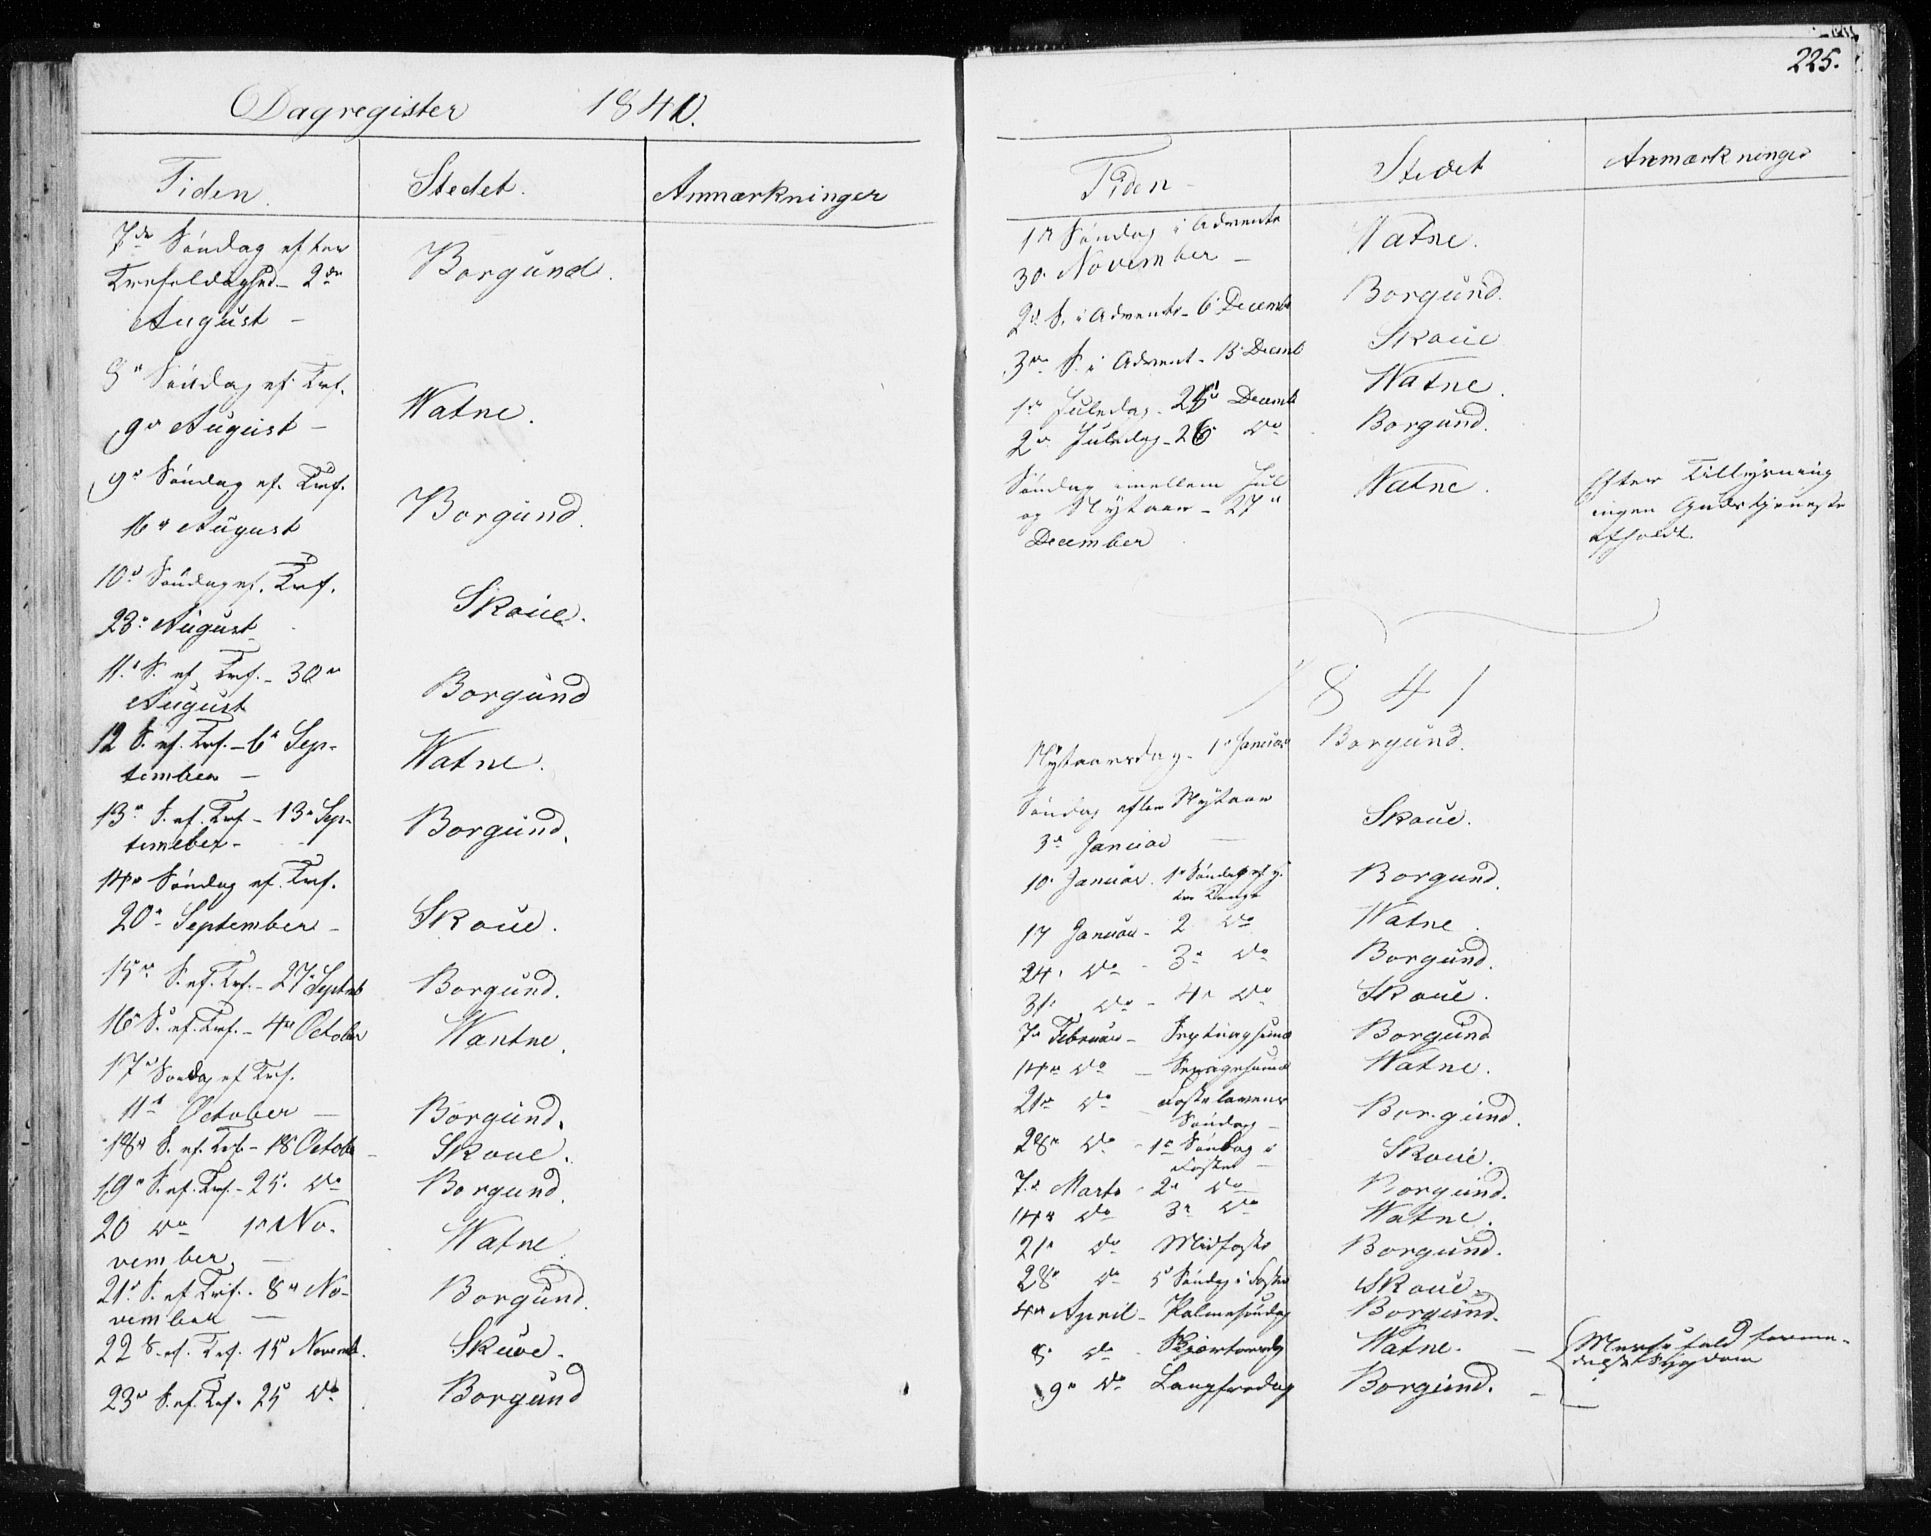 Dagregister 1840.
Tiden. Stedet. Anmærkninger
7de Søndag efter
Trefoldighed - 2den Borgund.
August -
8de Søndag ef. Tref.
9de August - Watne.
9de Søndag ef. Tref.
16de August Borgund.
10de Søndag ef. Tref.
23de August Skoue.
11te S. ef. Tref. - 30te
August Borgund
12 S. ef. Tref. - 6te Sep-
tember - Watne.
13de S. ef. Tref - 13de Sep-
temeber - Borgund.
14de Søndag ef. Tref.
20de September - Skoue.
15de S. ef. Tref. - 27 Septemb Borgund.
16de S. ef. Tref. - 4de October Wantne.
17de Søndag ef Tref.
11te October - Borgund.
18de S. ef. Tref - 18 Octobr - Skoue.
19de S. ef. Tref. - 25. do Borgund.
20 do 1ste No-
vember - Watne.
21de S. ef Tref. - 8de No-
vember - Borgund.
22 S. ef. Tref. 15 Novemb. Skuoe.
23de S. ef. Tref. 25 do Borgund
225.
Tiden - Stedet Anmærkninger
1ste Søndag i Advente
30. November - Watne.
2de S. i Advente - 6 Decemb Borgund.
3die S. i Advent - 13 Decemb Skoue
1ste Juledag - 25 Decemb Watne.
2den Juledag - 26 do Borgund.
Søndag imellem Jul
og Nytaar - 27de Watne.
December
Efter Tillysning
ingen Gudstjeneste
afholdt.
1841
Nytaarsdag - 1ste Januar Borgund.
Søndag efter Nytaar
3de Januar - Skoue.
10. Januar. 1ste Søndag ef H. Borgund.
tre Konger
17 Januar - 2 do Watne.
24. do - 3de do Borgund.
31. do - 4de do Skoue.
7de Februar - Septuagesima Borgund
14de do - Sexagesima Watne.
21de do - Fastelavens
Søndag - Borgund.
28de do - 1ste Søndag i
Fasten - Skoue.
7de Marts - 2de do Borgund.
14de do 3de do Watne.
21de do Midfaste Borgund.
28de do 5te Søndag i Faste Skoue.
4de April - Palmesøndag Borgund.
8de do - Skjærtorsdag Watne. -
9de do - Langfredag Borgund. -
Messefald forme-
delst Sygdom